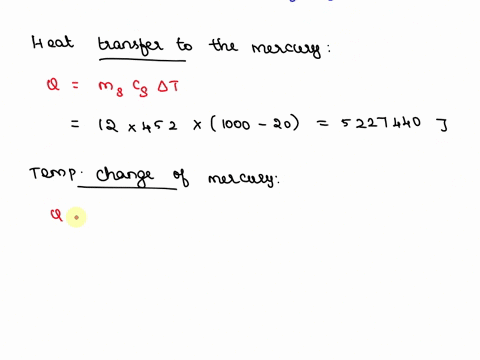 Heat transfer to the mercury:
Q = m₈ c₈ ΔT
= 12 × 452 × (1000 - 20) = 5227440 J
Temp. change of mercury:
Q